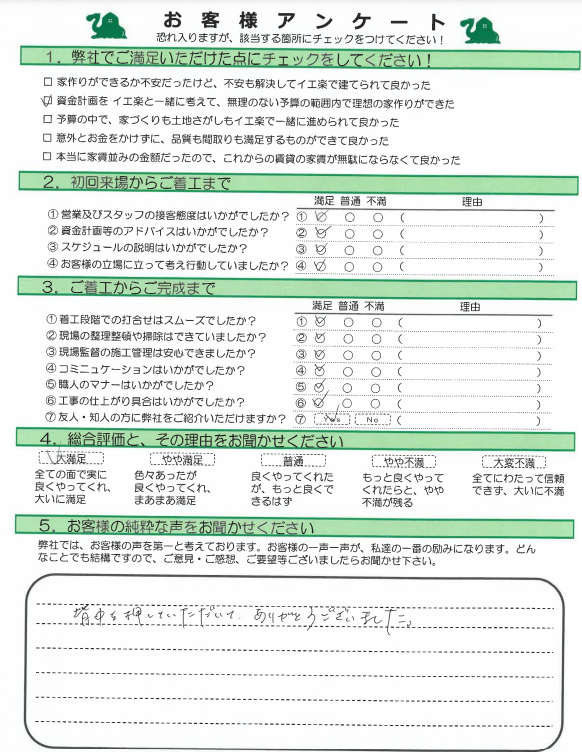 お客様アンケート
恐れ入りますが、該当する箇所にチェックをつけてください！
1．弊社でご満足いただけた点にチェックをしてください！
□ 家作りができるか不安だったけど、不安も解決してイエ楽で建てられて良かった
☑ 資金計画を イエ楽と一緒に考えて、無理のない予算の範囲内で理想の家作りができた
□ 予算の中で、家づくりも土地さがしもイエ楽で一緒に進められて良かった
□ 意外とお金をかけずに、品質も間取りも満足するものができて良かった
□ 本当に家賃並みの金額だったので、これからの賃貸の家賃が無駄にならなくて良かった
2．初回来場からご着工まで
満足 普通 不満 理由
① 営業及びスタッフの接客態度はいかがでしたか？ ① ☑ ○ ○ （ ）
② 資金計画等のアドバイスはいかがでしたか？ ② ☑ ○ ○ （ ）
③ スケジュールの説明はいかがでしたか？ ③ ☑ ○ ○ （ ）
④ お客様の立場に立って考え行動していましたか？ ④ ☑ ○ ○ （ ）
3．ご着工からご完成まで
満足 普通 不満 理由
① 着工段階での打合せはスムーズでしたか？ ① ☑ ○ ○ （ ）
② 現場の整理整頓や掃除はできていましたか？ ② ☑ ○ ○ （ ）
③ 現場監督の施工管理は安心できましたか？ ③ ☑ ○ ○ （ ）
④ コミニュケーションはいかがでしたか？ ④ ☑ ○ ○ （ ）
⑤ 職人のマナーはいかがでしたか？ ⑤ ☑ ○ ○ （ ）
⑥ 工事の仕上がり具合はいかがでしたか？ ⑥ ☑ ○ ○ （ ）
⑦ 友人・知人の方に弊社をご紹介いただけますか？ ⑦ Yes No （ ）
4．総合評価と、その理由をお聞かせください
大満足 やや満足 普通 やや不満 大変不満
全ての面で実に良くやってくれ、大いに満足
色々あったが良くやってくれ、まあまあ満足
良くやってくれたが、もっと良くできるはず
もっと良くやってくれたらと、やや不満が残る
全てにわたって信頼できず、大いに不満
5．お客様の純粋な声をお聞かせください
弊社では、お客様の声を第一と考えております。お客様の一声一声が、私達の一番の励みになります。どん
なことでも結構ですので、ご意見・ご感想、ご要望等ございましたらお聞かせ下さい。
背中を押していただいて、ありがとうございました。